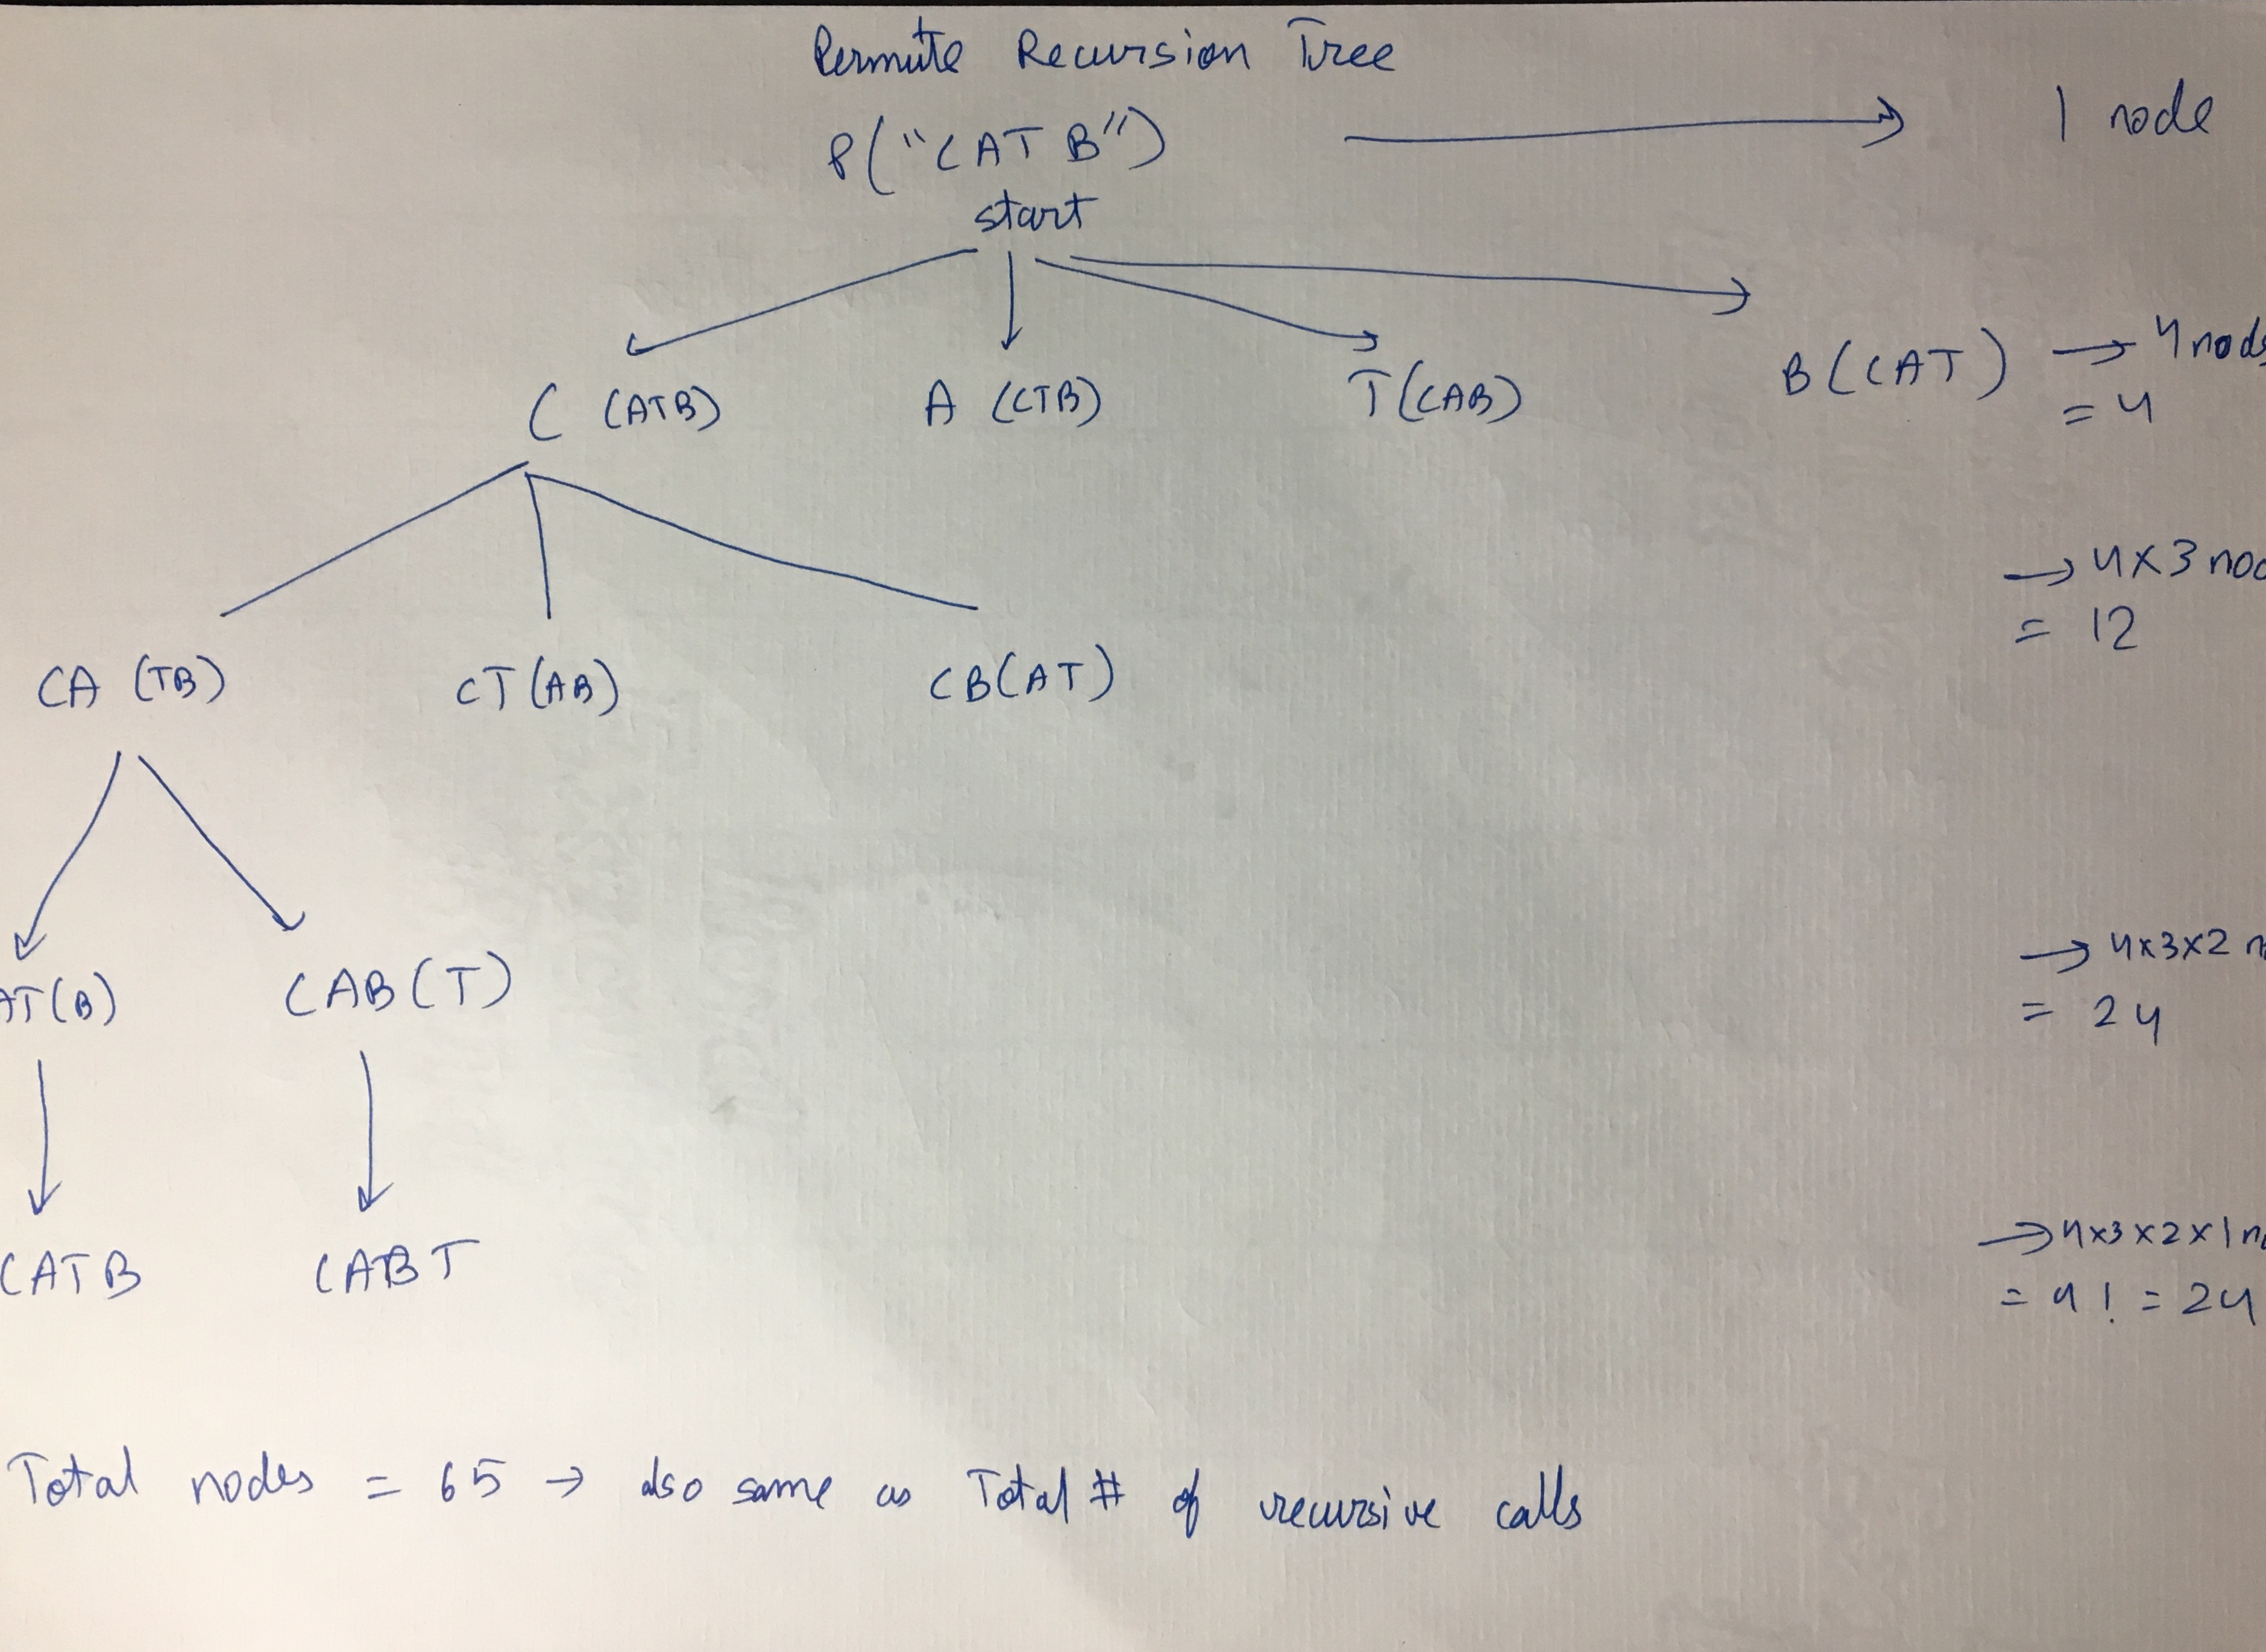 Permute Recursion Tree
P("CATB") → 1 node
start
C (ATB) A (CTB) T(CAB) B(CAT) → 4 nodes
= 4
→ 4x3 nod
= 12
CA (TB) CT(AB) CB(AT)
→ 4x3x2 n
AT(B) CAB(T) = 24
→ 4x3x2x1 no
CATB CABT = 4! = 24
Total nodes = 65 → also same as Total # of recursive calls